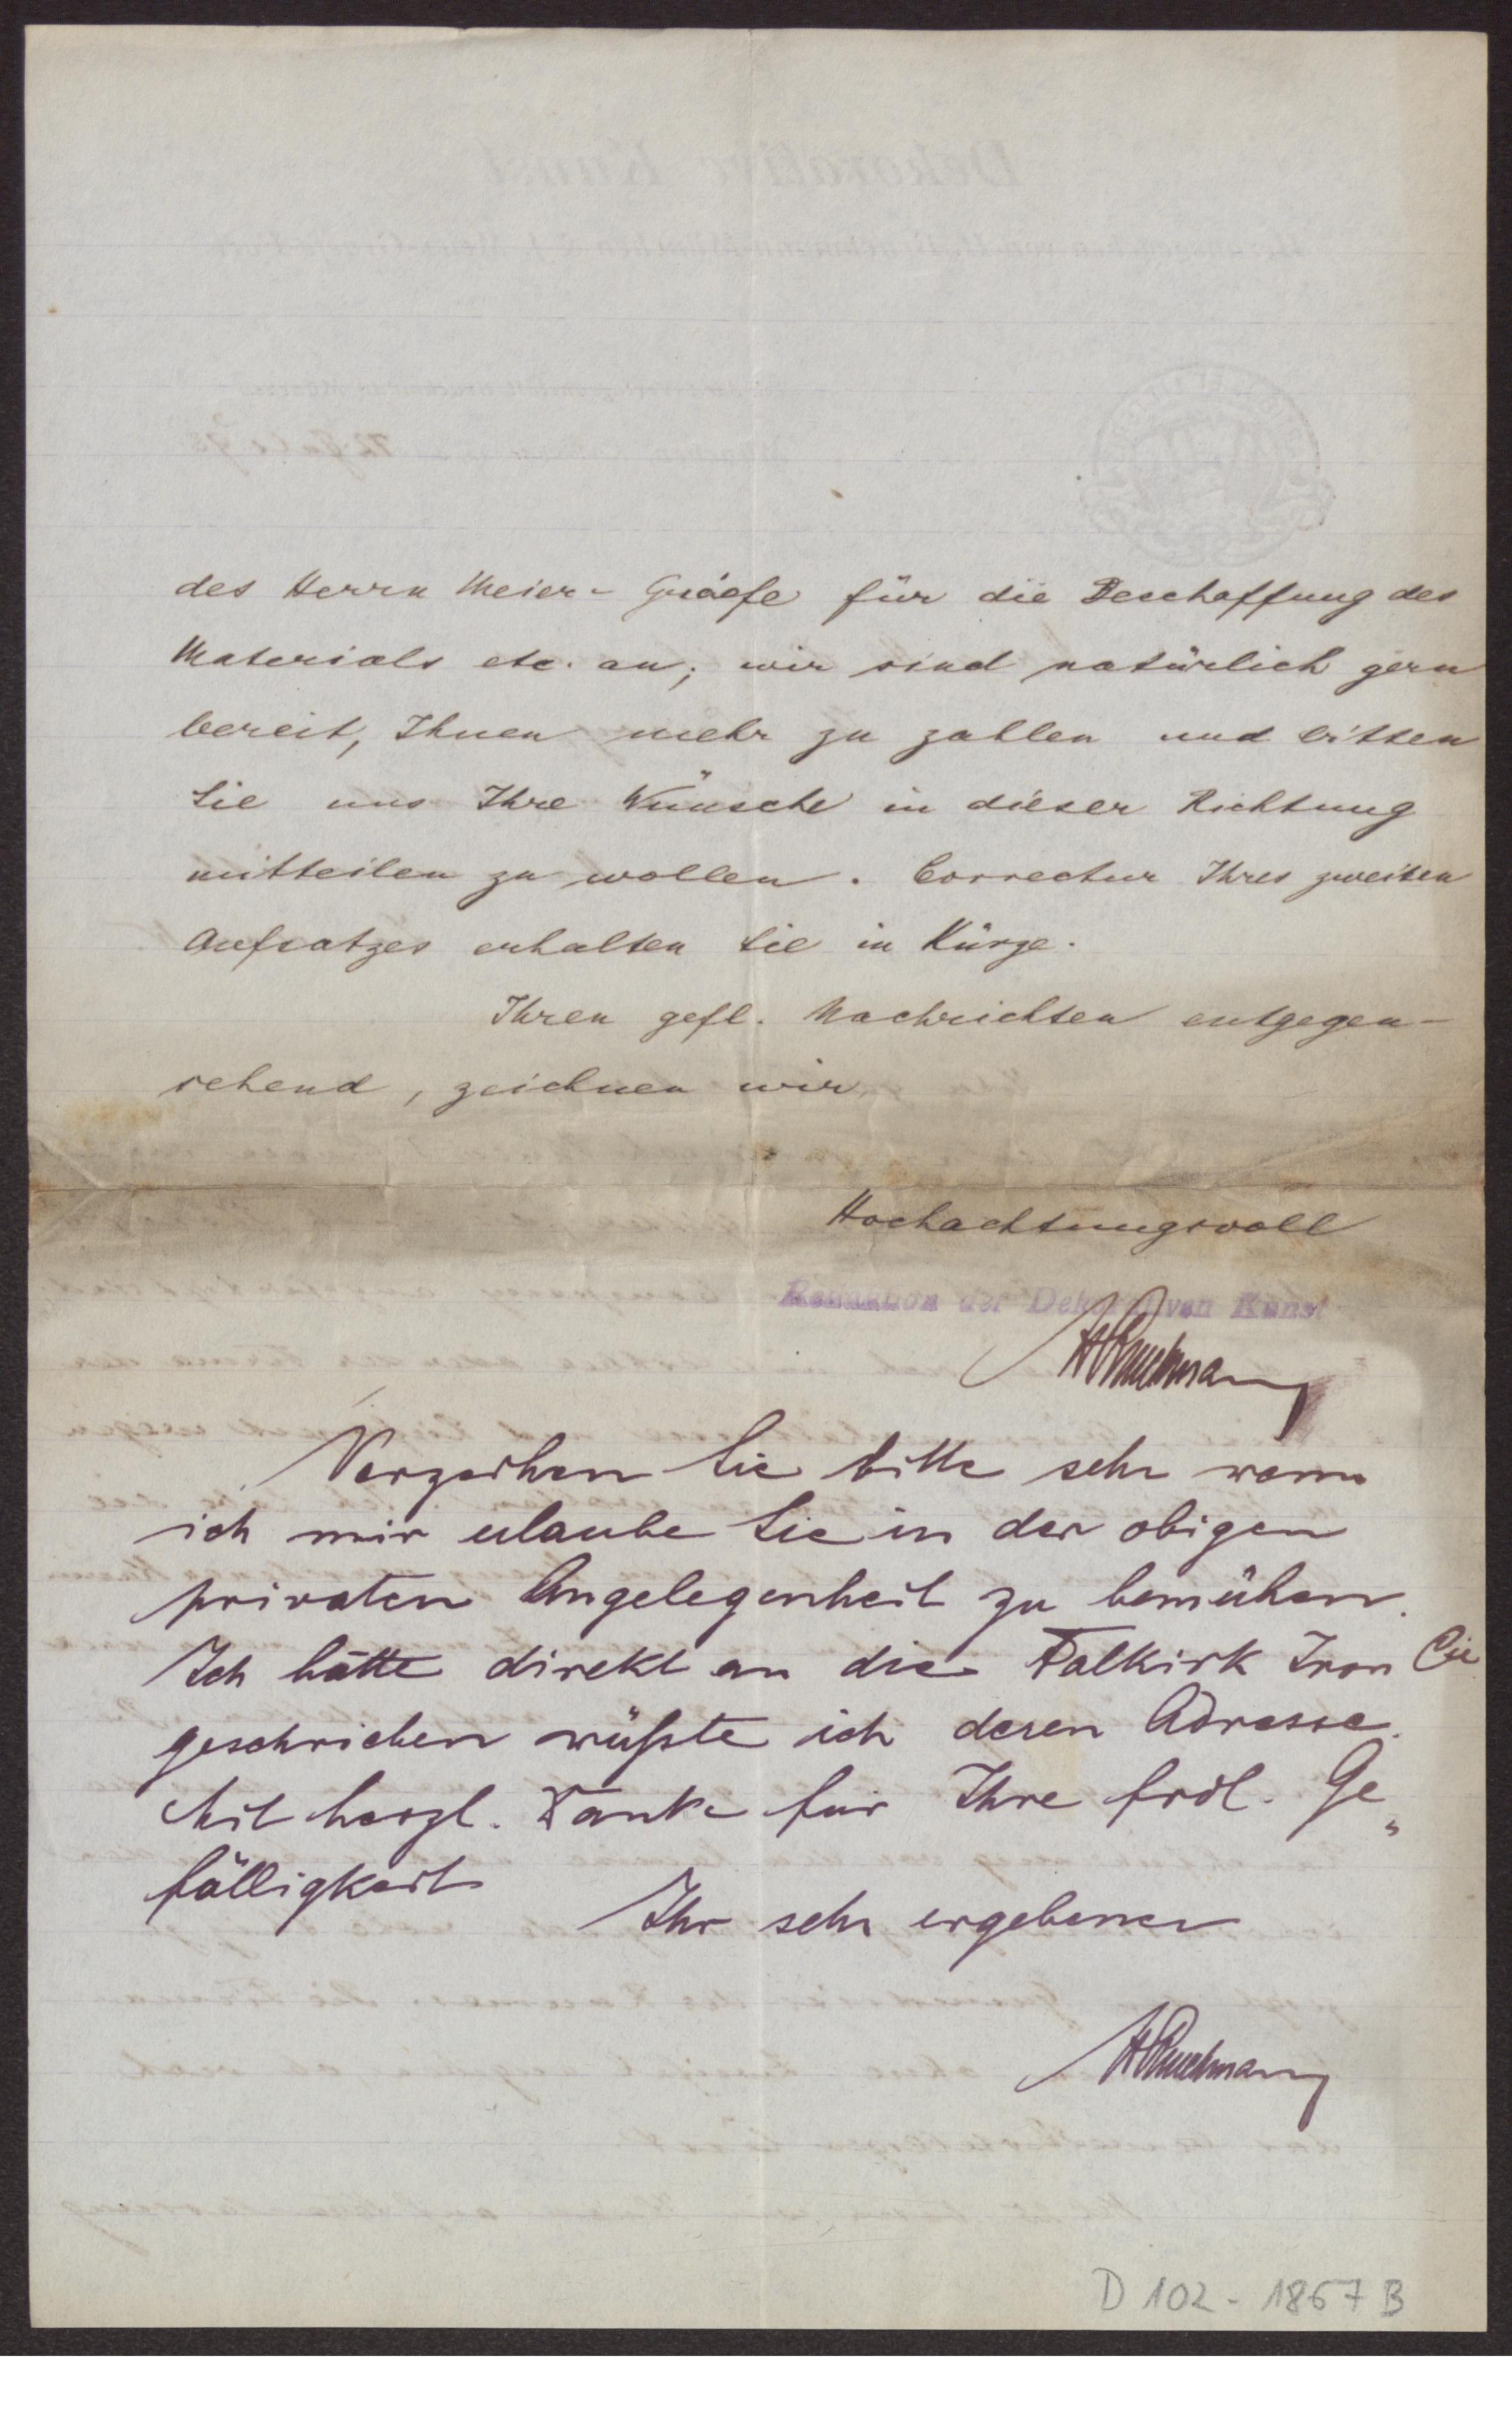 des Herrn Meier-Graefe für die Beschaffung des
Materials etc. an; wir sind natürlich gern
bereit, Ihnen mehr zu zahlen und bitten
Sie uns Ihre Wünsche in dieser Richtung
mitteilen zu wollen. Correctur Ihres zweiten
Aufsatzes erhalten Sie in Kürze.
Ihren gefl. Nachrichten entgegen-
sehend, zeichnen wir
Hochachtungsvoll
Redaktion der Dekorativen Kunst
HBruckmann
Verzeihen Sie bitte sehr wenn
ich mir erlaube Sie in der obigen
privaten Angelegenheit zu bemühen.
Ich hätte direkt an die Falkirk Iron Cie
geschrieben wüßte ich deren Adresse.
Mit herzl. Danke für Ihre frdl. Ge„
fälligkeit
Ihr sehr ergebener
HBruckmann
D 102-1867 B